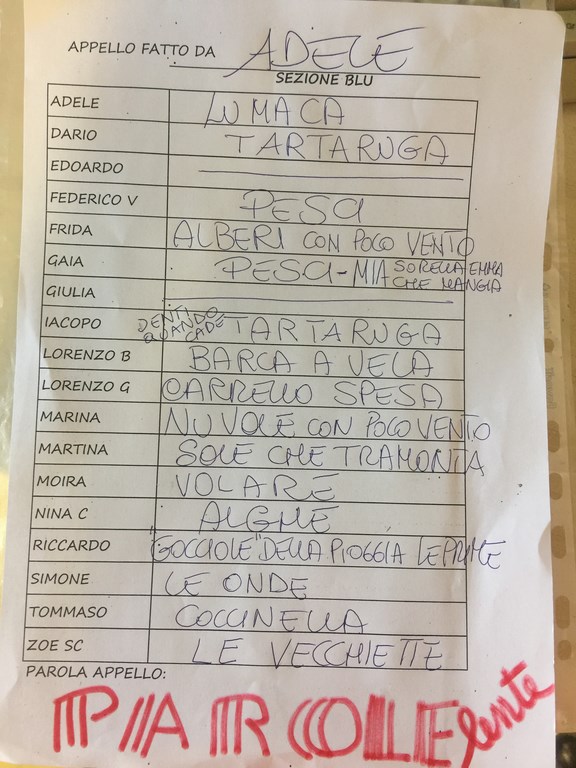 APPELLO FATTO DA ADELE
SEZIONE BLU
ADELE LUMACA
DARIO TARTARUGA
EDOARDO
FEDERICO V PESCI
FRIDA ALBERI CON POCO VENTO
GAIA PESCI-MIA SORELLA EMMA CHE MANGIA
GIULIA
IACOPO DENTI QUANDO CADE TARTARUGA
LORENZO B BARCA A VELA
LORENZO G CARRELLO SPESA
MARINA NUVOLE CON POCO VENTO
MARTINA SOLE CHE TRAMONTA
MOIRA VOLARE
NINA C ALGHE
RICCARDO "GOCCIOLE" DELLA PIOGGIA LE PRIME
SIMONE LE ONDE
TOMMASO COCCINELLA
ZOE SC LE VECCHIETTE
PAROLA APPELLO:
PAROLE lente